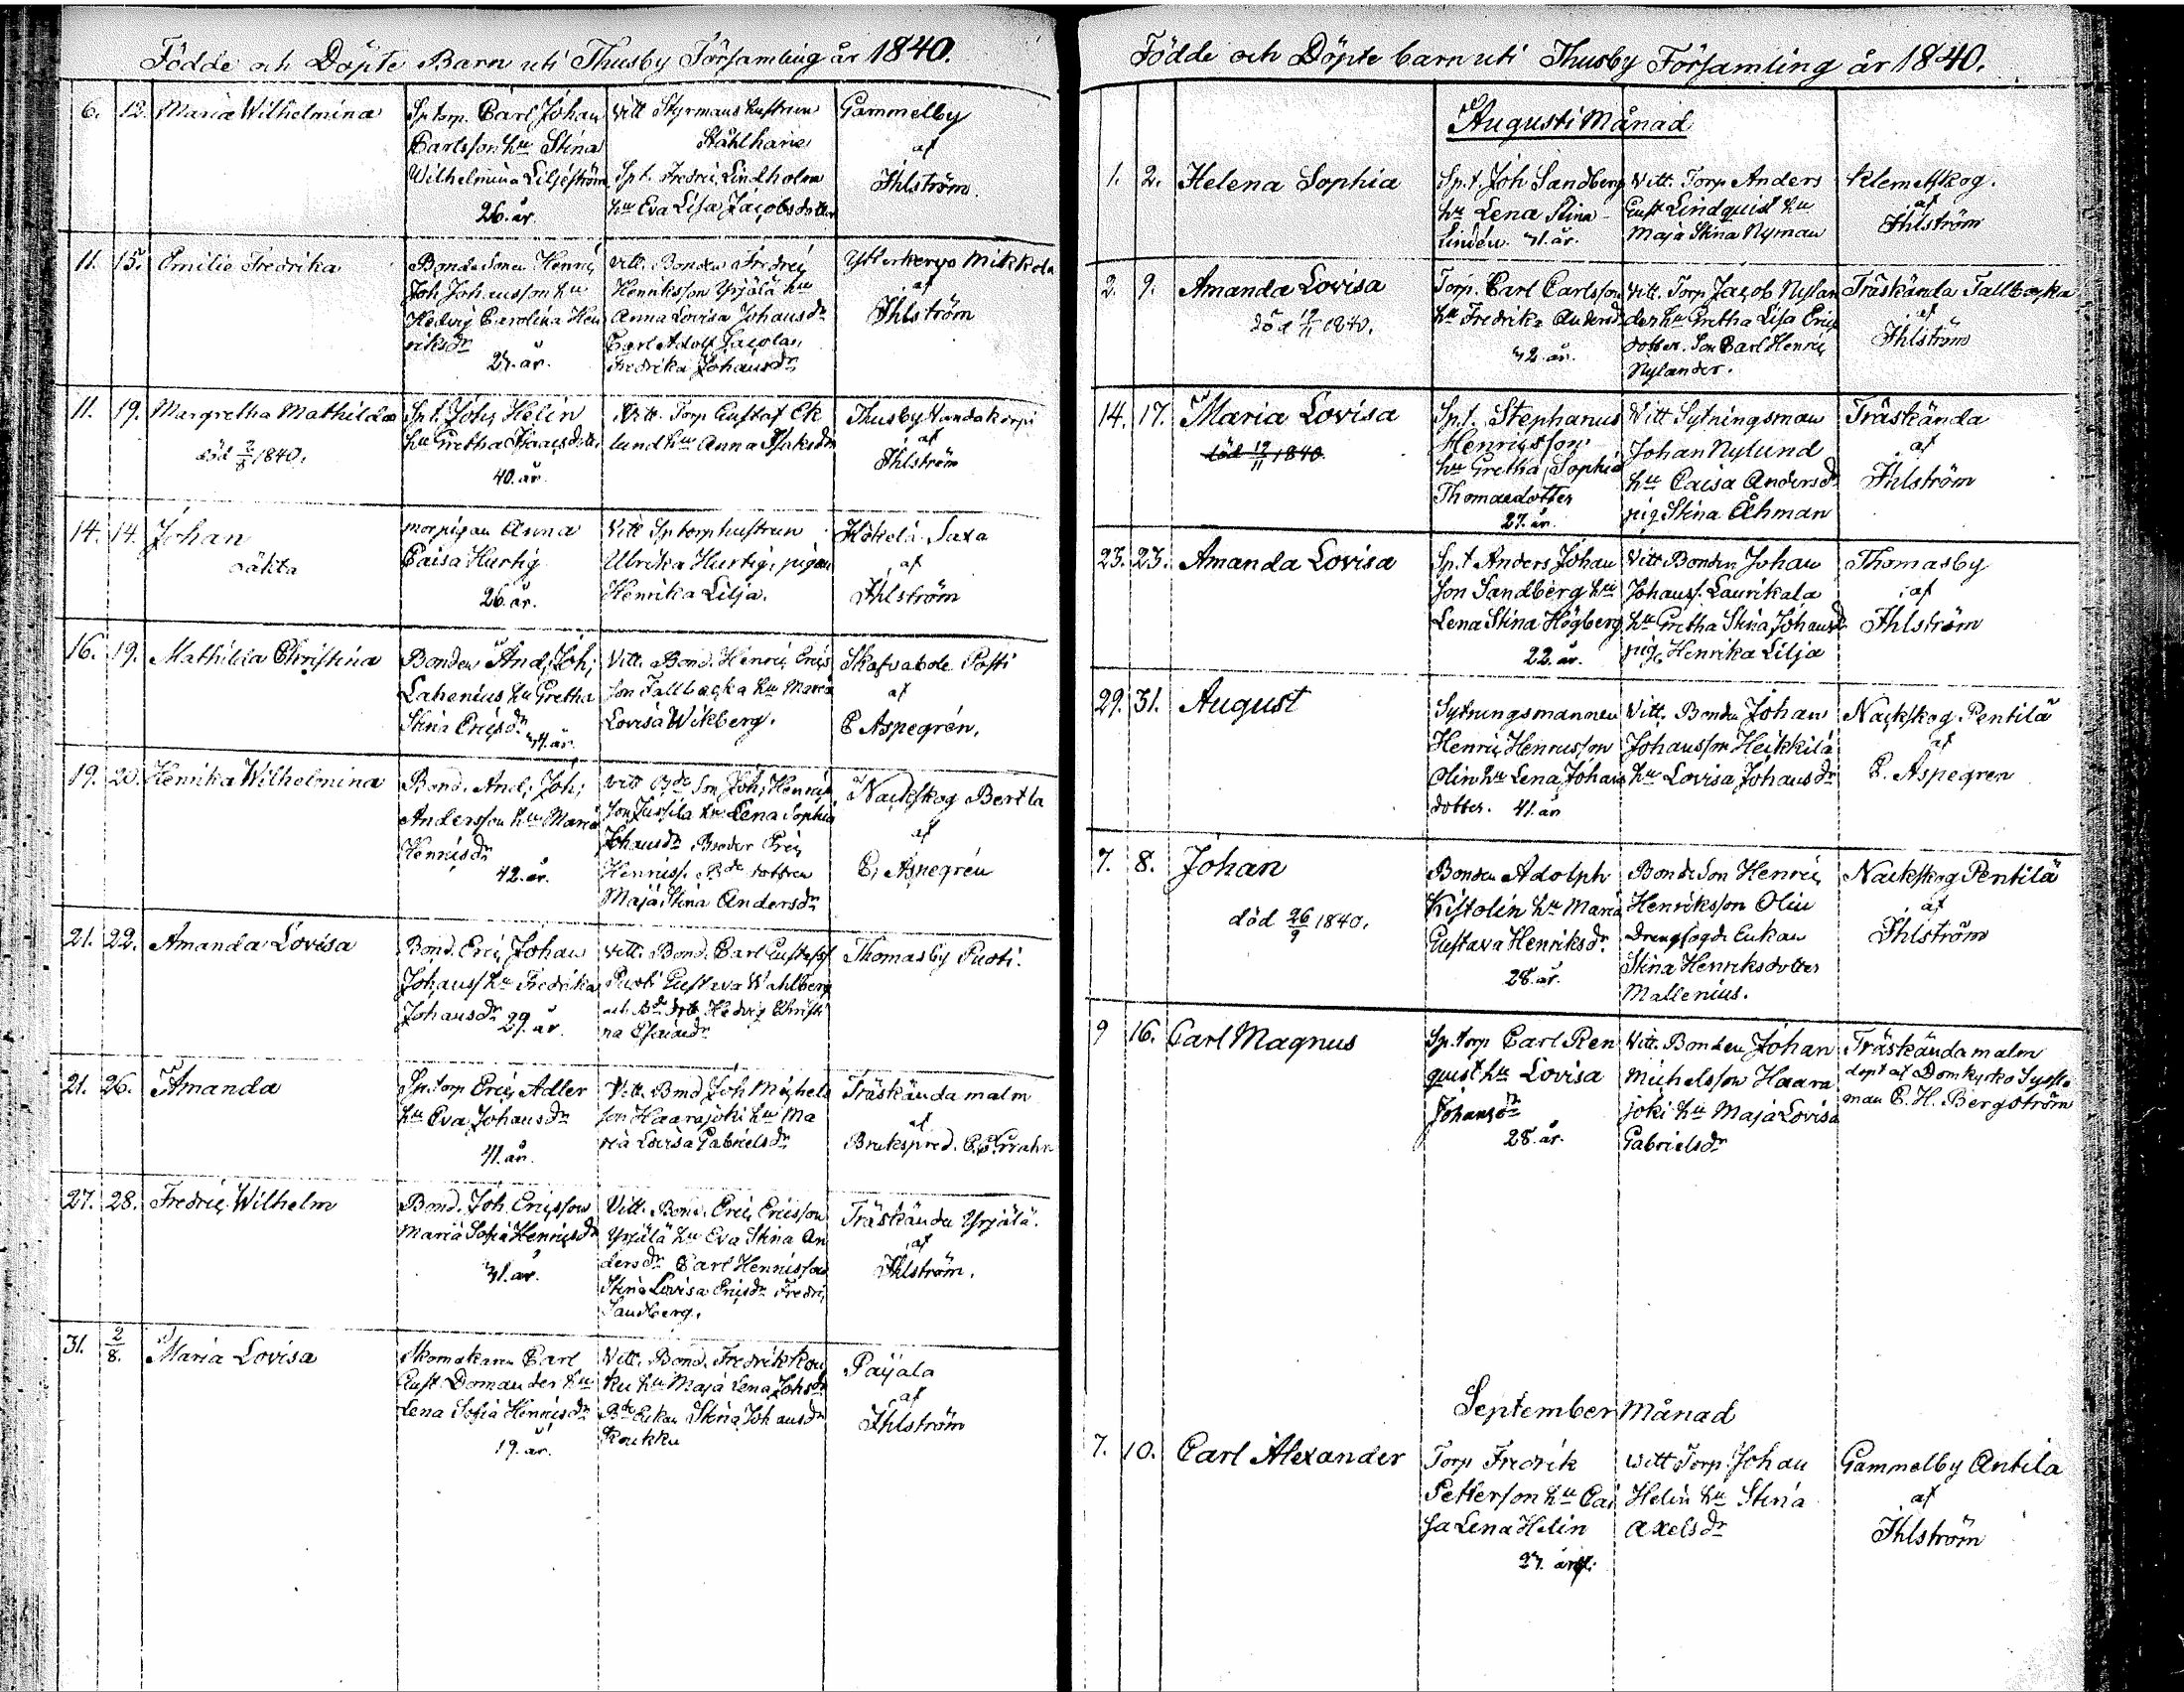 Födde och Döpte Barn uti Thusby Församling år 1840.
6. 12. Maria Wilhelmina
Sp.torp. Carl Johan
Carlsson hu Stina
Wilhelmina Liljeström
26. år.
Vitt Styrmans hustrun
Ståhlhane
Sp.t. Fredric Lindholm
hu Eva Lisa Jacobsdotter
Gammelby
af
Ihlström
11. 15. Emilie Fredrika
Bondesonen Henric
Joh Johansson hu
Hedvig Carolina Hen
riksdr
27. år.
Vitt. Bonden Fredric
Henriksson Yrjälä hu
Anna Lovisa Johansdr
Carl Adolf Jacobss.
Fredrika Johansdr
Ytterkervo Mikkola
af
Ihlström
11. 19. Margretha Mathilda
död 2/8 1840.
Sp.t. Joh; Helin
hu Gretha Isaacsdotter
40. år.
Vitt. Torp Gustaf Ek
lund hu Anna Isaksdr
Thusby Vandakorpi
af
Ihlström
14. 14. Johan
oäkta
pigan Anna
Caisa Hurtig
26. år.
Vitt Sp torp hustrun
Ulrika Hurtig, pigan
Henrika Lilja.
Hötelä Saxa
af
Ihlström
16. 19. Mathilda Christina
Bonden And; Joh;
Lahenius hu Gretha
Stina Ericsdr
34. år.
Vitt. Bond. Henric Erics
son Tallbacka hu Maria
Lovisa Wikberg.
Skafvabole Posti
af
C Aspegrén.
19. 20. Henrika Wilhelmina
Bond. And; Joh;
Andersson hu Maria
Henricsdr
42. år.
Vitt Bde Son Joh; Henric
son Jussila hu Lena Sophia
Johansdr Broder Eric
Henricss. Bde dottren
Maja Stina Andersdr
Nackskog Bertla
af
C; Aspegrén
21. 22. Amanda Lovisa
Bond. Eric Johan
Johanss hu Fredrika
Johansdr 29. år.
Vitt. Bond. Carl Gustafss
Puoti Gustava Wahlberg
och Bde dotr Hedvig Christi
na Esaiaedr
Thomasby Puoti.
21. 26. Amanda
Sp.torp Eric Adler
hu Eva Johansdr
41. år.
Vitt. Bond Joh Michels
son Haarajoki hu Ma
ria Lovisa Gabrielsdr
Träskända malm
af
Brukspred. C. G. Grahn
27. 28. Fredric Wilhelm
Bond. Joh. Ericsson
Maria Sofia Henricsdr
31. år.
Vitt. Bond. Eric Ericsson
Yrjälä hu Eva Stina An
dersdr Carl Henricsson
Stina Lovisa Ericsdr Fredric
Sandberg.
Träskända Yrjälä.
af
Ihlström.
31. 2/8. Maria Lovisa
Skomakaren Carl
Gust. Domander hu
Lena Sofia Henricsdr
19. år.
Vitt. Bond. Fredrik Kou
ku hu Maja Lena Johsdr
Bde Enkan Stina Johansdr
Koukku
Paijala
af
Ihlström
Födde och Döpte barn uti Thusby Församling år 1840.
Augusti Månad
1. 2. Helena Sophia
Sp.t. Joh Sandberg
hu Lena Stina
Lindén. 31. år.
Vitt. Torp Anders
Gust Lindquist hu
Maja Stina Nyman
Klemetskog.
af
Ihlström
2. 9. Amanda Lovisa
död 12/11 1840.
Torp. Carl Carlsson
hu Fredrika Andersdr
32. år.
Vitt. Torp Jacob Nylan
der hu Gretha Lisa Erics
dotter. Son Carl Henric
Nylander.
Träskända Tallbacka
af
Ihlström
14. 17. Maria Lovisa
död 12/11 1840
Sp.t. Stephanus
Henricsson
hu Gretha Sophia
Thomasdotter
27. år.
Vitt Sytningsman
Johan Nylund
hu Caisa Andersdr
pig Stina Åhman
Träskända
af
Ihlström
23. 23. Amanda Lovisa
Sp.t Anders Johan
son Sandberg hu
Lena Stina Högberg
22. år.
Vitt Bonden Johan
Johanss. Laurikala
hu Gretha Stina Johansdr
pig. Henrika Lilja
Thomasby
af
Ihlström
29. 31. August
Sytningsmannen
Henric Henricsson
Olin hu Lena Johans
dotter. 41. år
Vitt. Bonden Johan
Johansson Heikkilä
hu Lovisa Johansdr
Nackskog Pentilä
af
C. Aspegren
7. 8. Johan
död 26/9 1840.
Bonden Adolph
Kistolin hu Maria
Gustava Henriksdr
28. år.
Bonde Son Henric
Henriksson Olin
Drengfogde Enkan
Stina Henriksdotter
Mallenius.
Nackskog Pentilä
af
Ihlström
9 16. Carl Magnus
Sp.torp Carl Ren
quist hu Lovisa
Johansdr
28. år.
Vitt. Bonden Johan
Michelsson Haara
joki hu Maja Lovisa
Gabrielsdr
Träskända malm
döpt af Domkyrko Sysslo
man C. H. Bergström
September Månad
7. 10. Carl Alexander
Torp Fredrik
Petterson hu Cai
sa Lena Helin
27. år
Vitt Torp Johan
Helin hu Stina
Axelsdr
Gammelby Antila
af
Ihlström